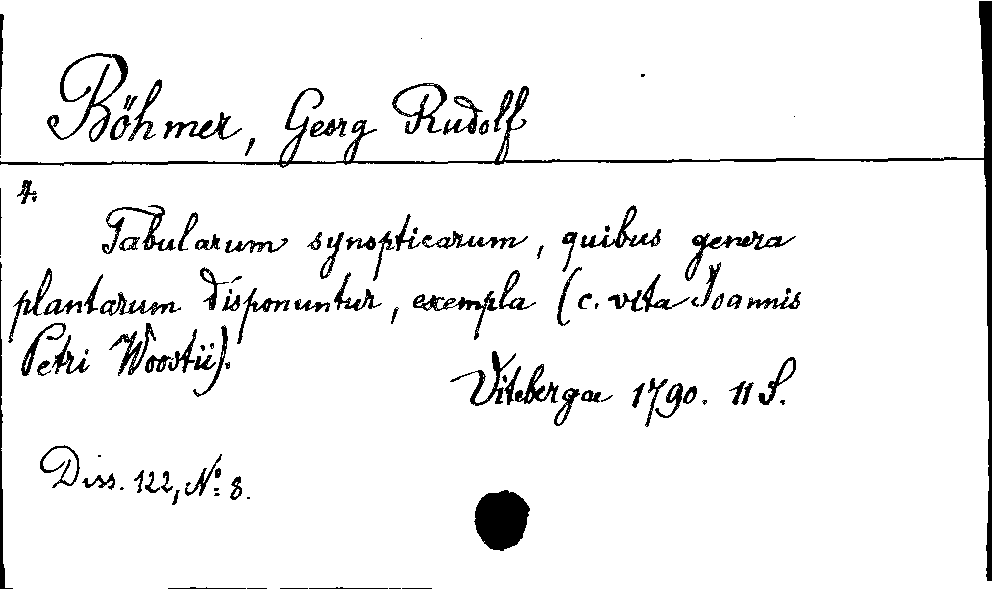 Böhmer, Georg Rudolf
4.
Tabularum synopticarum, quibus genera
plantarum disponuntur, exempla (c. vita Joannis
Petri Woostii).
Vitebergae 1790. 11 S.
Diss. 122, No. 8.